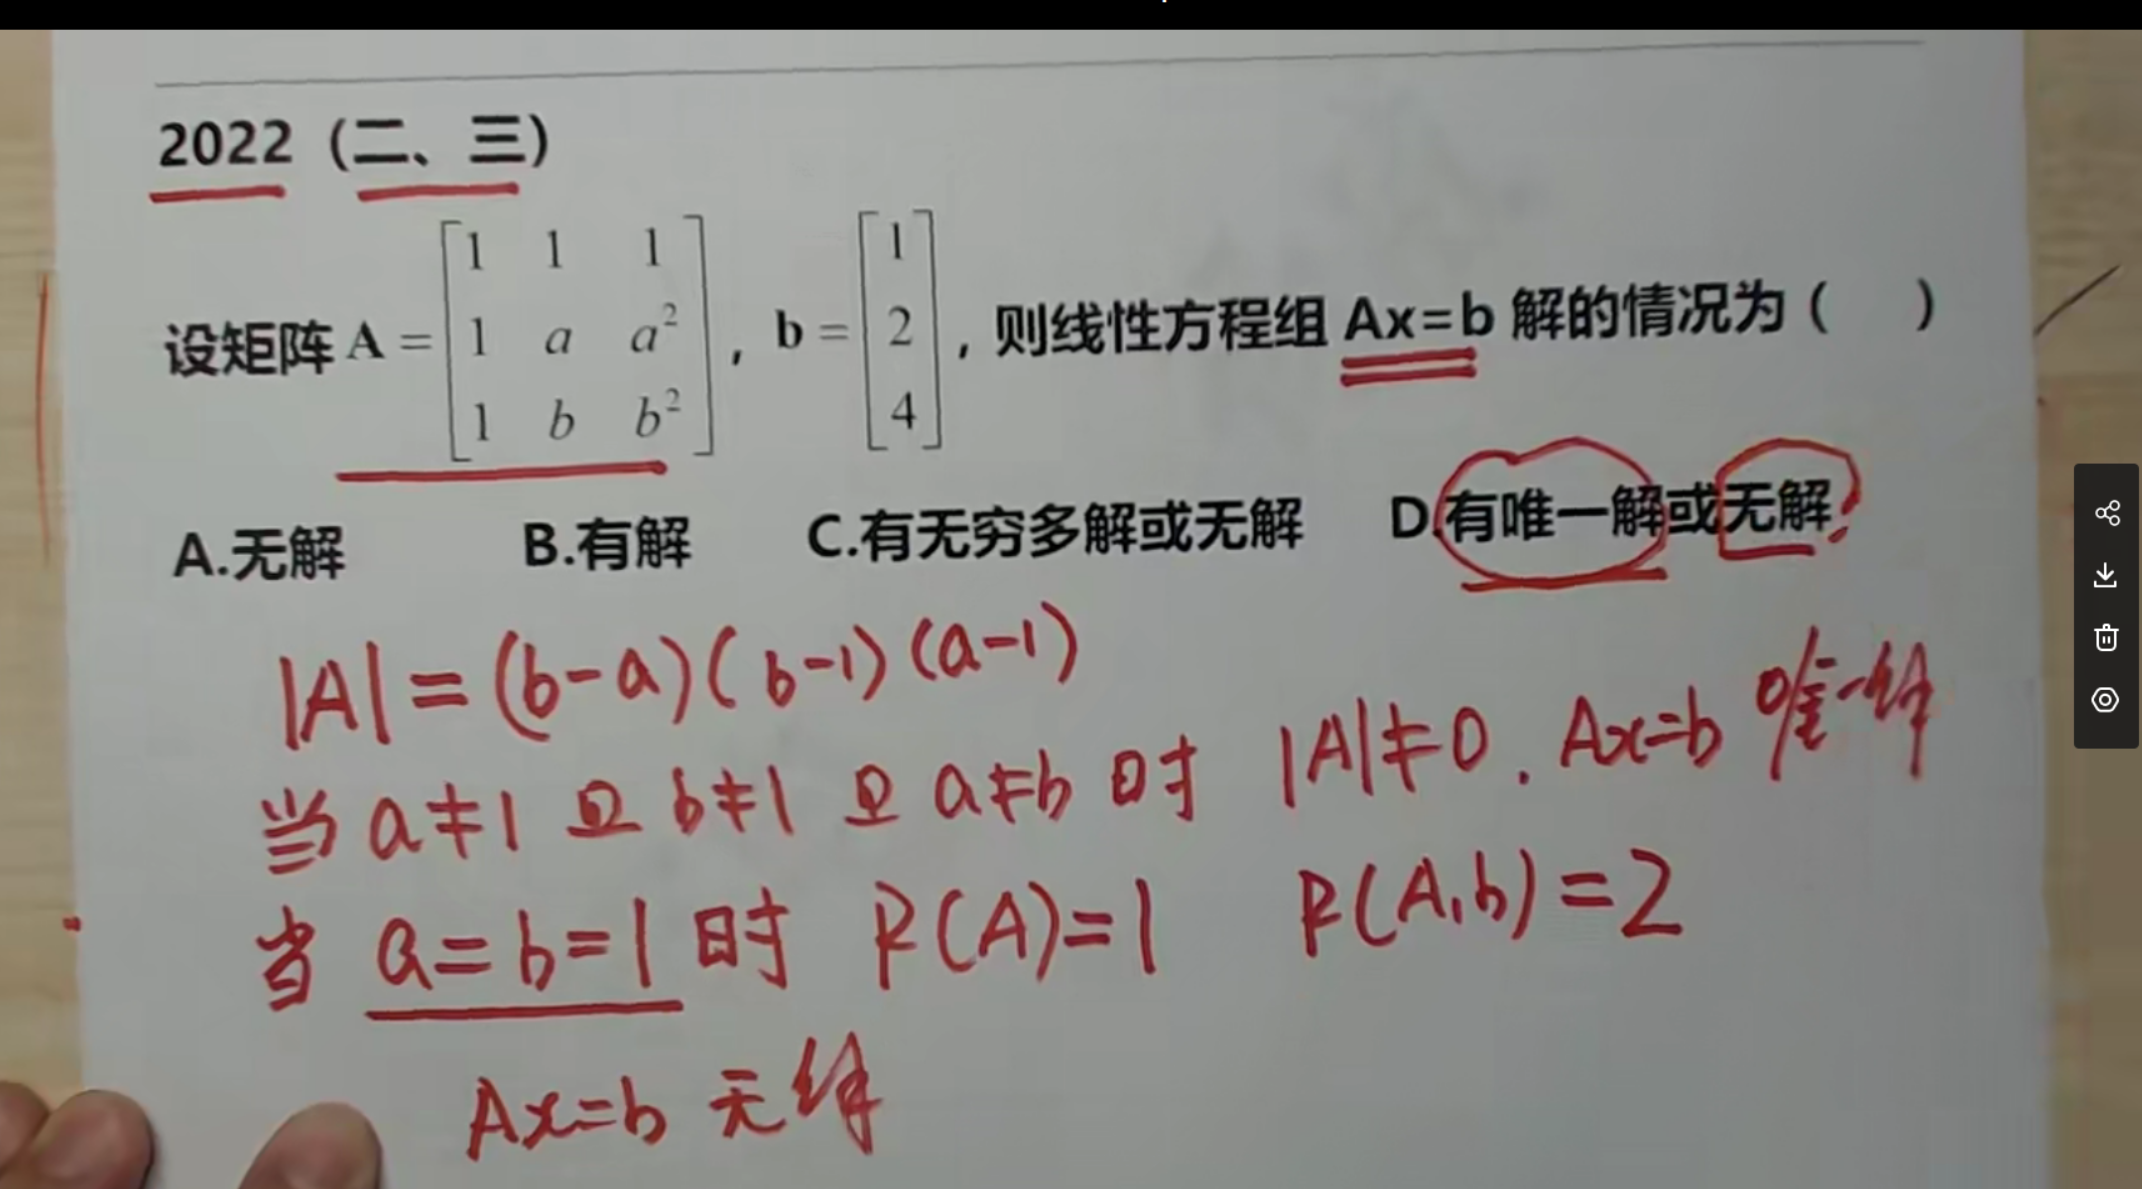 2022（二、三）
设矩阵 A = [1 1 1; 1 a a²; 1 b b²]，b = [1; 2; 4]，则线性方程组 Ax=b 解的情况为（ ）
A.无解 B.有解 C.有无穷多解或无解 D.有唯一解或无解.
|A| = (b-a)(b-1)(a-1)
当 a≠1 且 b≠1 且 a≠b 时 |A|≠0. Ax=b 唯一解
当 a=b=1 时 R(A)=1 R(A,b)=2
Ax=b 无解